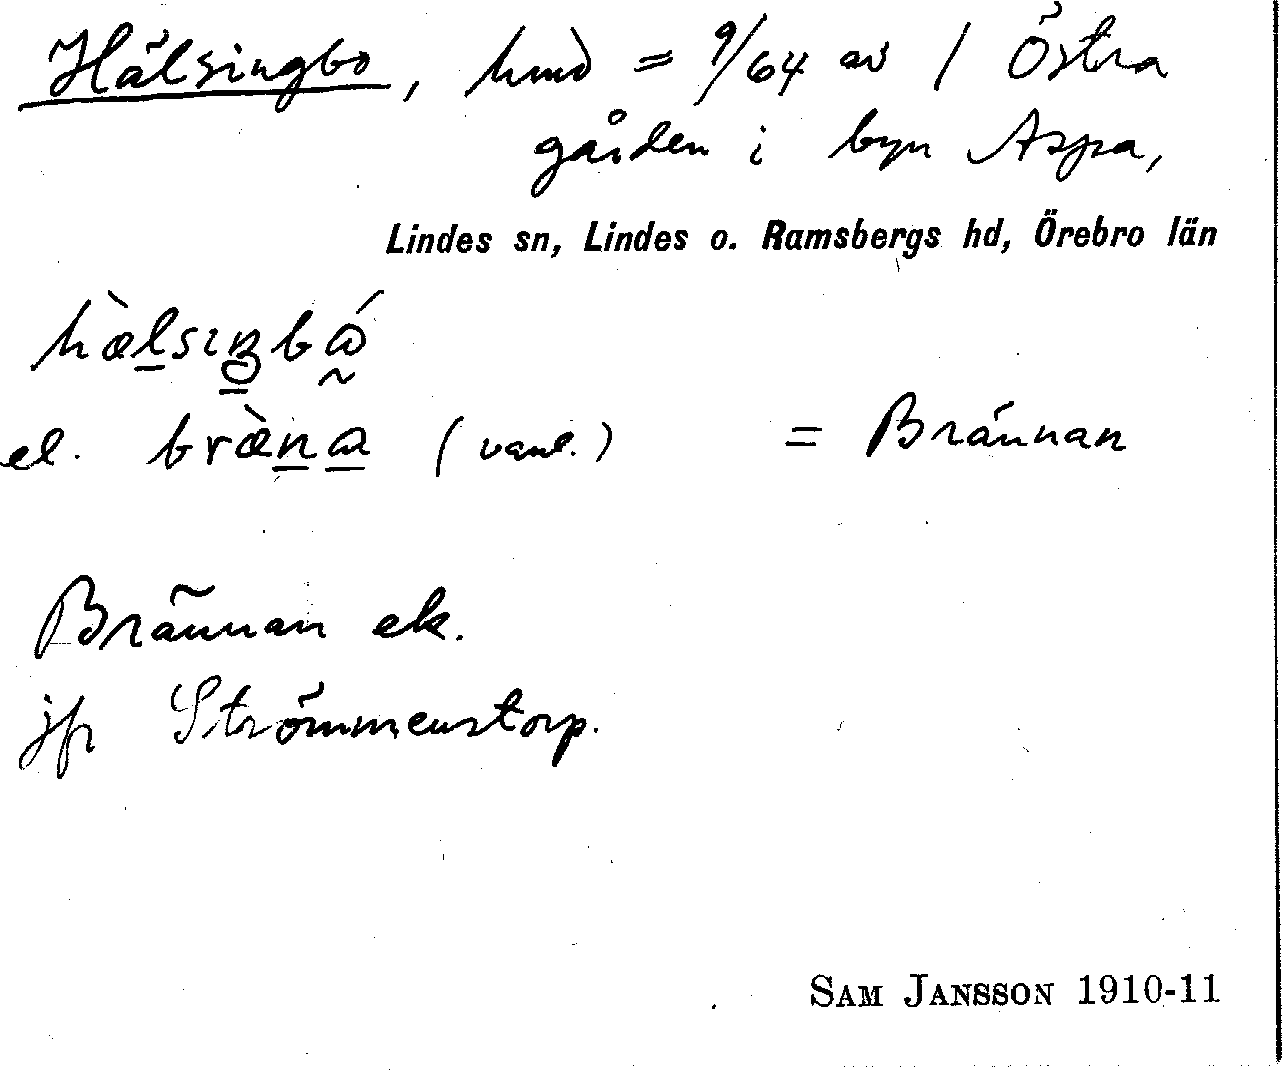 Hälsingbo, hmd = 9/64 av 1 Östra
gården i byn Aspa,
Lindes sn, Lindes o. Ramsbergs hd, Örebro län
hæ̀lsıŋbɷ́
el. bræ̀na (vanl.) = Brännan
Brännan ek.
jfr Strömmenstorp.
SAM JANSSON 1910-11